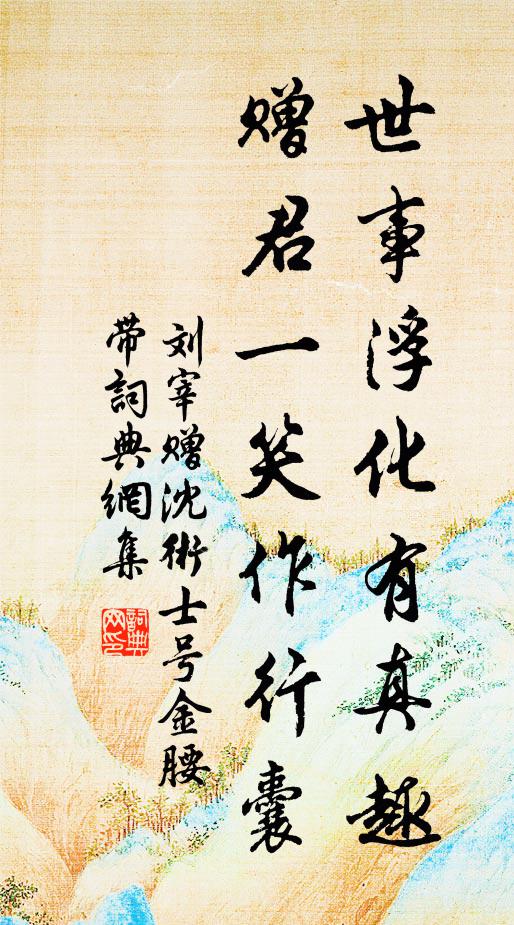 世事浮化有真趣
赠君一笑作行囊
刘宰赠沈術士号金腰
带詞典網集
詞典